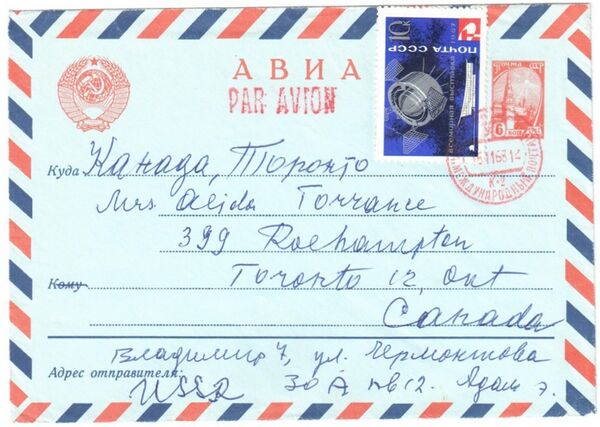 АВИА
PAR AVION
10к
ПОЧТА СССР
1967
всемирная выставка
почта СССР
6 КОПЕЕК
МЕЖДУНАРОДНЫЙ ПОЧТ
К-2
Куда Канада, Торонто
Mrs Aleida Torrance
399 Roehampton
Кому Toronto 12, Ont
Canada
Владимир 7, ул. Лермонтова
Адрес отправителя: USSR 30 А кв 12. Адам э.